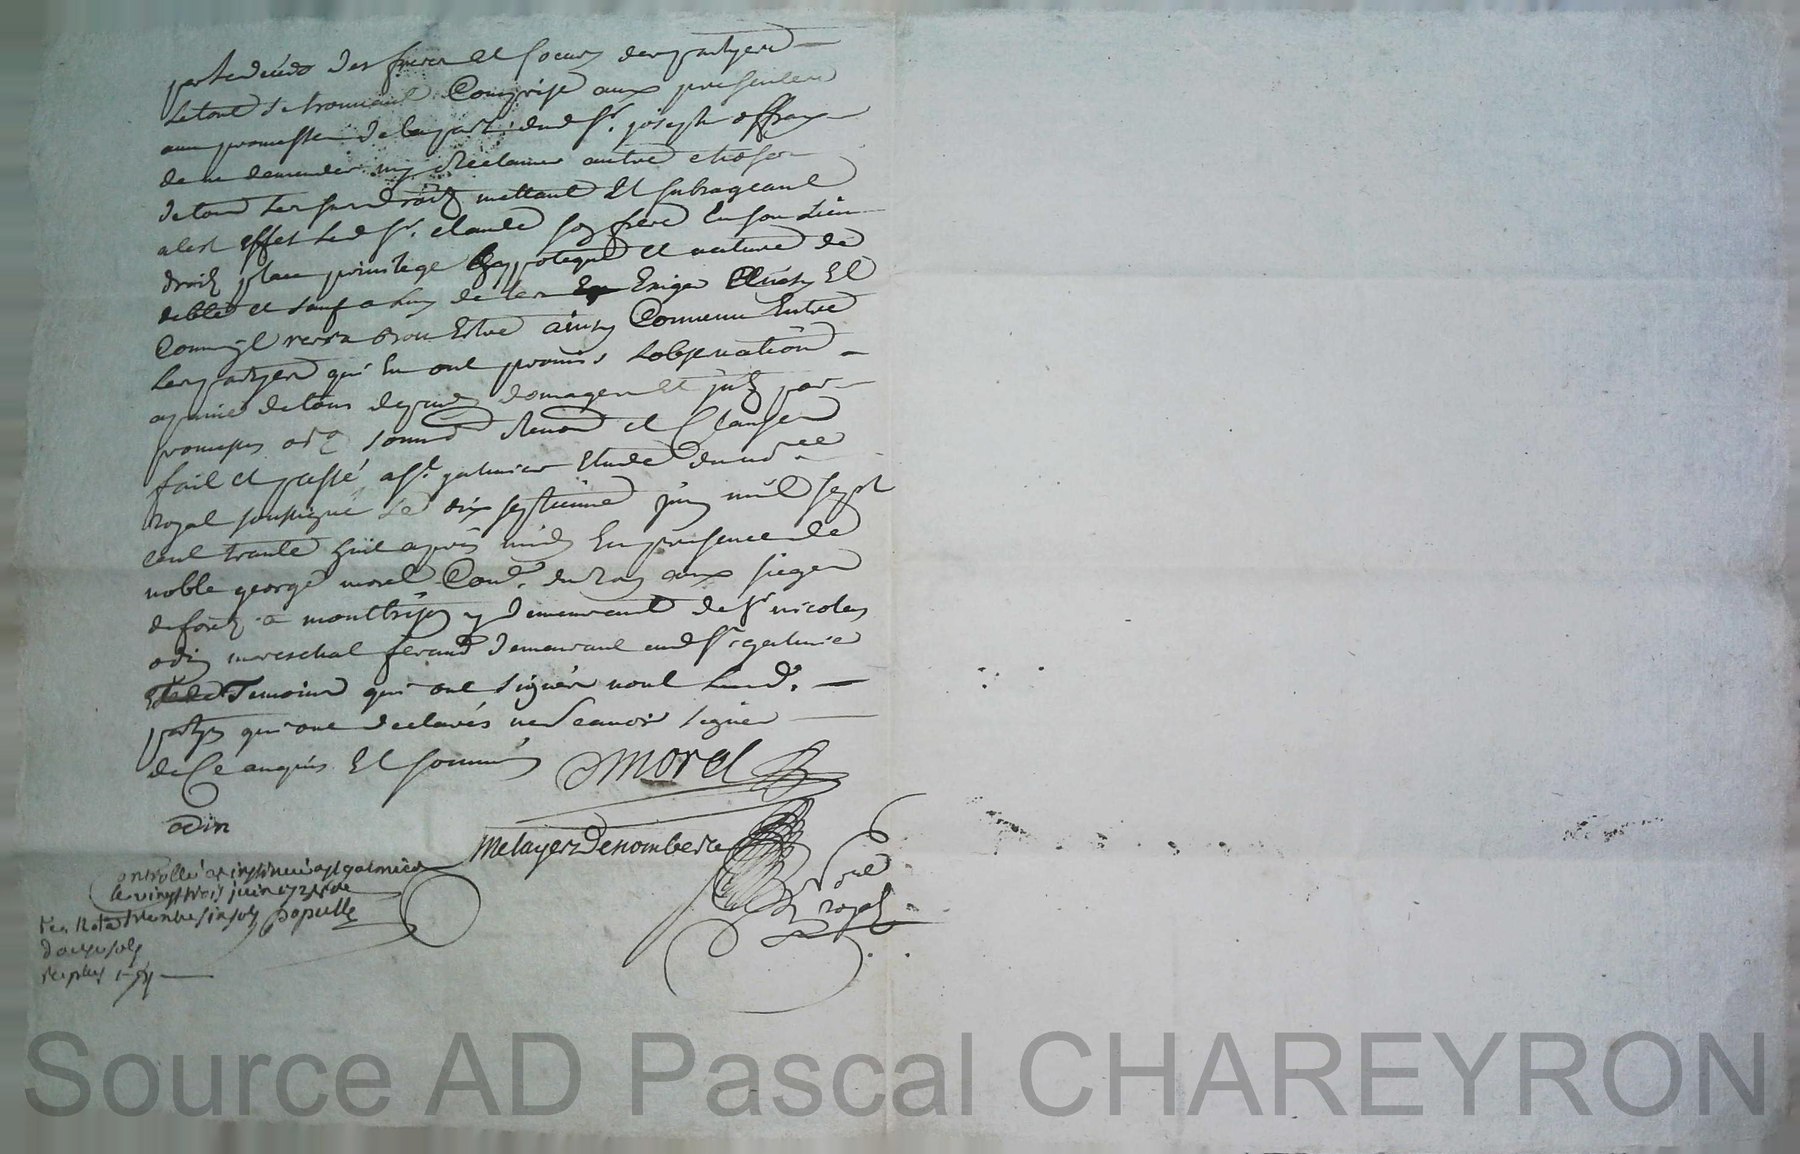 par le deceds des freres et soeurs des partyes
le tout se trouvant Compris aux presentes
avec promesse de la part dud Sr. joseph offray
de ne demander ny Reclamer autre choses
de tous les sus droits mettant Et subrogeant
a cest effet led Sr. claude son frere En son Lieu
droit place privilege hypoteque et nature de
debte et sauf a luy de les Exiger ainsy Et
Comme Il verra bon Estre ainsy Convenu Entre
les partyes qui En ont promis Lobservation
a peine de tous depends domages et
promesses soumis Renon et Clauses
fait et passé a St. galmier Etude du no.re
Royal soussigné Le dix septieme juin mil sept
cent trante huit apres midy En presence de
noble george morel Cons.er du Roy aux sieges
de forest a montbrison y demeurant de Sr nicolas
odin mareschal ferand demeurant aud Sr. galmier
Temoins qui ont signés nont lesd.
partyes qui ont declarés ne sçavoir signer
de Ce enquis Et sommés morel
odin
Metayer Denombere
no.re
royal
Controllé et insinué a st galmier
le vingt trois juin 1738 Reçu
populle
douze sols